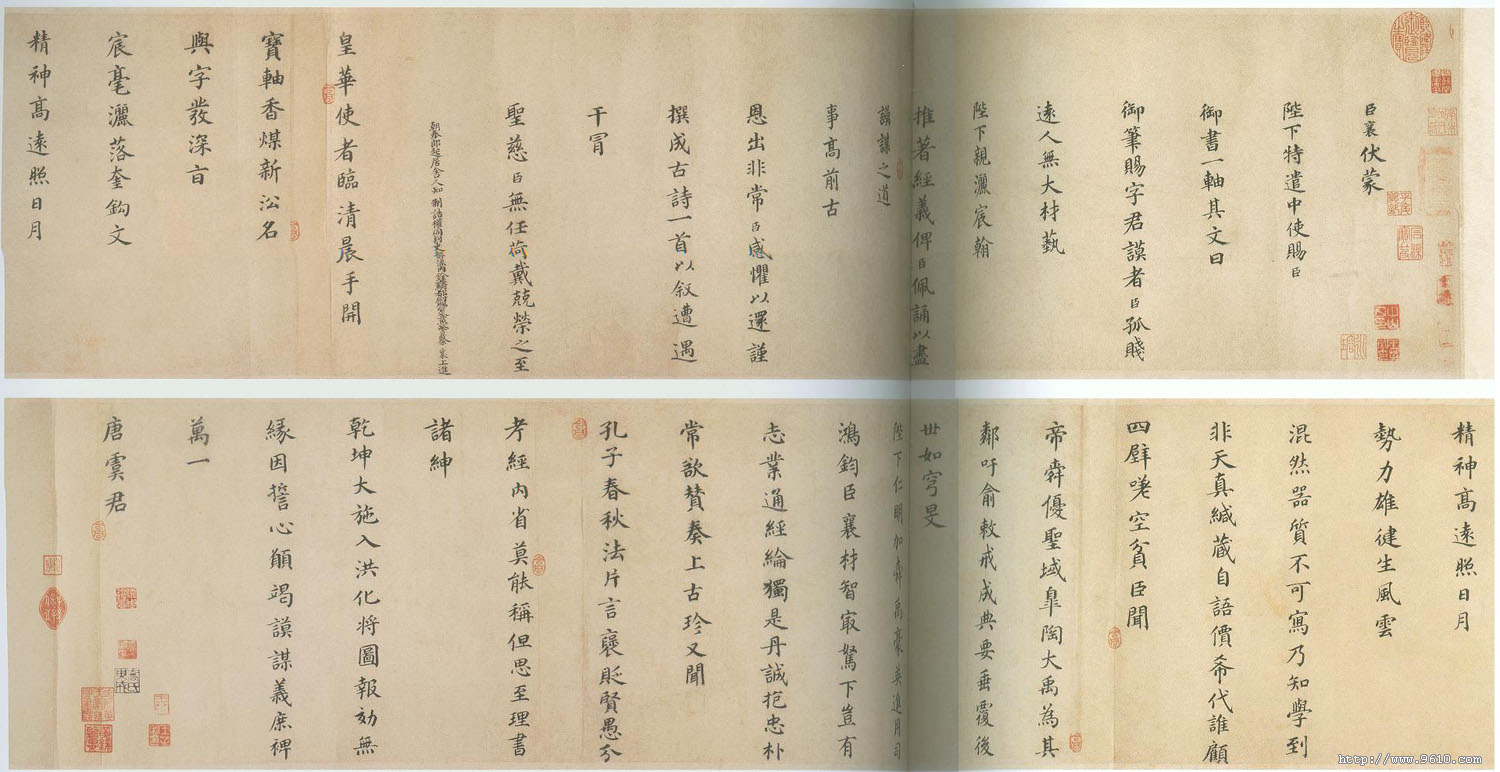 臣襄伏蒙
陛下特遣中使賜臣
御書一軸其文曰
御筆賜字君謨者臣孤賤
遠人無大材藝
陛下親灑宸翰
推著經義俾臣佩誦以盡
謨謀之道
事高前古
恩出非常臣感懼以還謹
撰成古詩一首以叙遭遇
干冒
聖慈臣無任荷戴兢榮之至
朝奉郎起居舍人知制誥權同判吏部流內銓
襄上進
皇華使者臨清晨手開
寶軸香煤新沄名
與字發深㫖
宸毫灑落奎鈎文
精神高遠照日月
精神高遠照日月
勢力雄健生風雲
混然器質不可寫乃知學到
非天真緘藏自語價希代誰顧
四壁嘆空貧臣聞
帝舜優聖域臯陶大禹為其
鄰吁俞敕戒成典要垂覆後
世如穹旻
陛下仁明加舜禹豪英進用司
鴻鈞臣襄材智㝡駑下豈有
志業通經綸獨是丹誠抱忠朴
常欲贊奏上古珍又聞
孔子春秋法片言褒貶賢愚分
考經內省莫能稱但思至理書
諸紳
乾坤大施入洪化將圖報効無
緣因誓心願竭謨謀義庶裨
萬一
唐虞君
http://www.9610.com